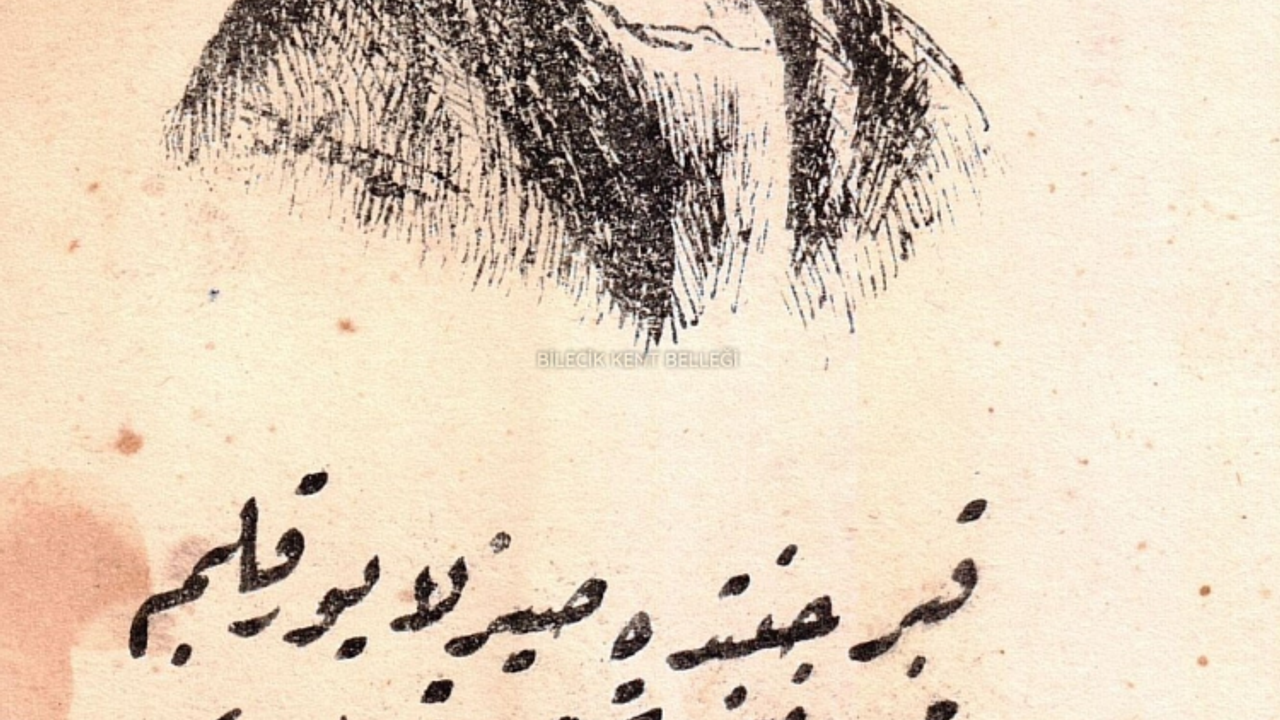 BİLECİK KENT BELLEĞİ
قبر جنبنده صيزلايور قلبم